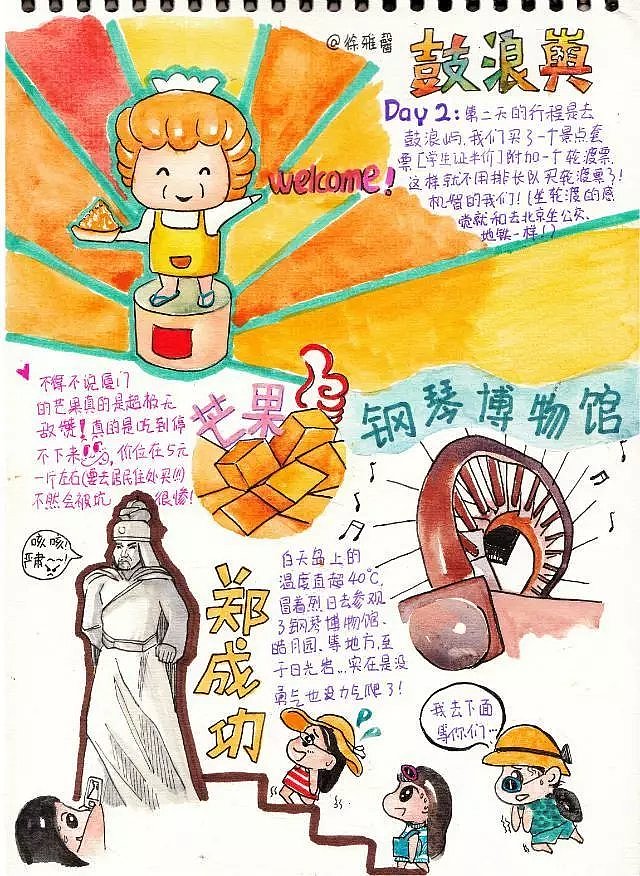 @徐雅馨
鼓浪嶼
Day 2: 第二天的行程是去
鼓浪屿,我们买了一个景点套
票[学生证半价]附加一个轮渡票,
这样就不用排长队买轮渡票了!
机智的我们!(坐轮渡的感
觉就和去北京坐公交、
地铁一样!)
welcome!
不得不说厦门
的芒果真的是超级无
敌赞!真的是吃到停
不下来,价位在5元
一斤左右(要去居民住处买!!)
不然会被坑 很惨!
芒果
钢琴博物馆
咳咳!
严肃~~!
郑成功
白天岛上的
温度直超40℃,
冒着烈日去参观
了钢琴博物馆、
皓月园、等地方,至
于日光岩...实在是没
勇气也没力气爬了!
我去下面
等你们...